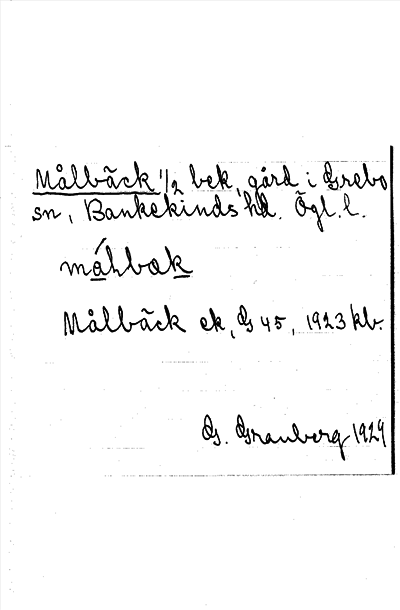 Målbäck 1/2 bek, gård i Grebo
sn, Bankekinds hd. Ögl. l.
Målbäck ek, G 45, 1923 kb.
G. Granberg 1929